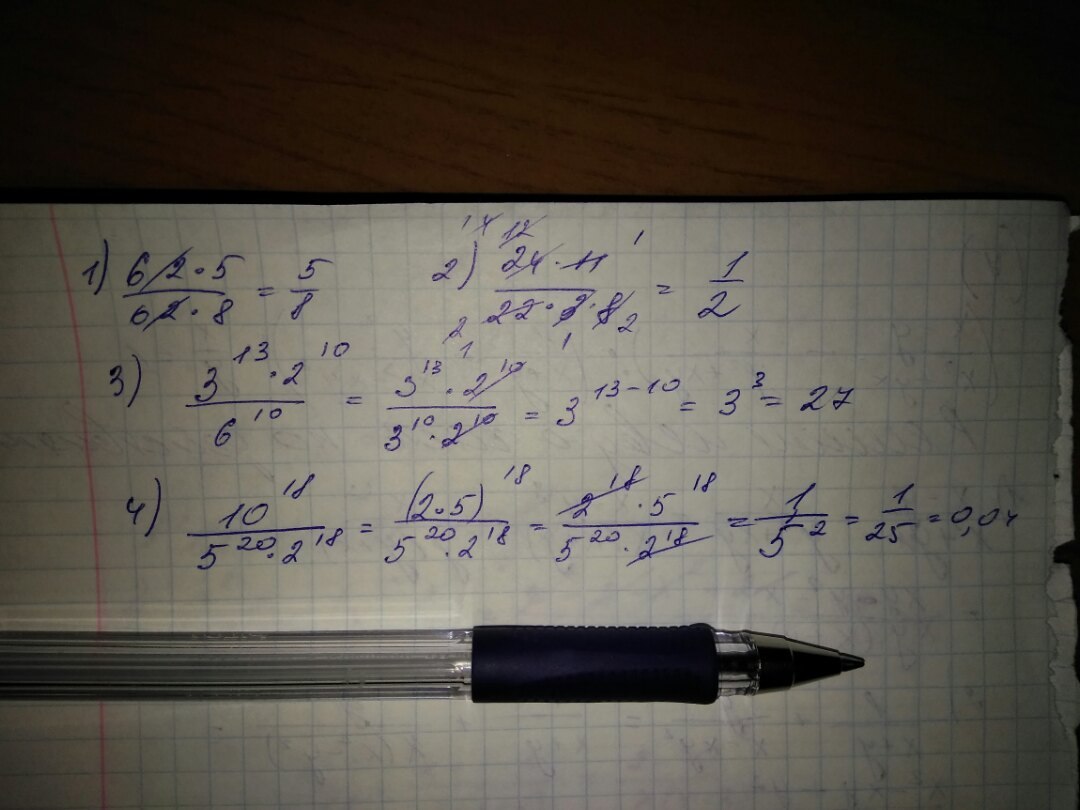 1) 62·5/62·8 = 5/8 2) 24·11/22·3·8 = 1/2
3) 3^13·2^10/6^10 = 3^13·2^10/3^10·2^10 = 3^13-10 = 3^3 = 27
4) 10^18/5^20·2^18 = (2·5)^18/5^20·2^18 = 2^18·5^18/5^20·2^18 = 1/5^2 = 1/25 = 0,04